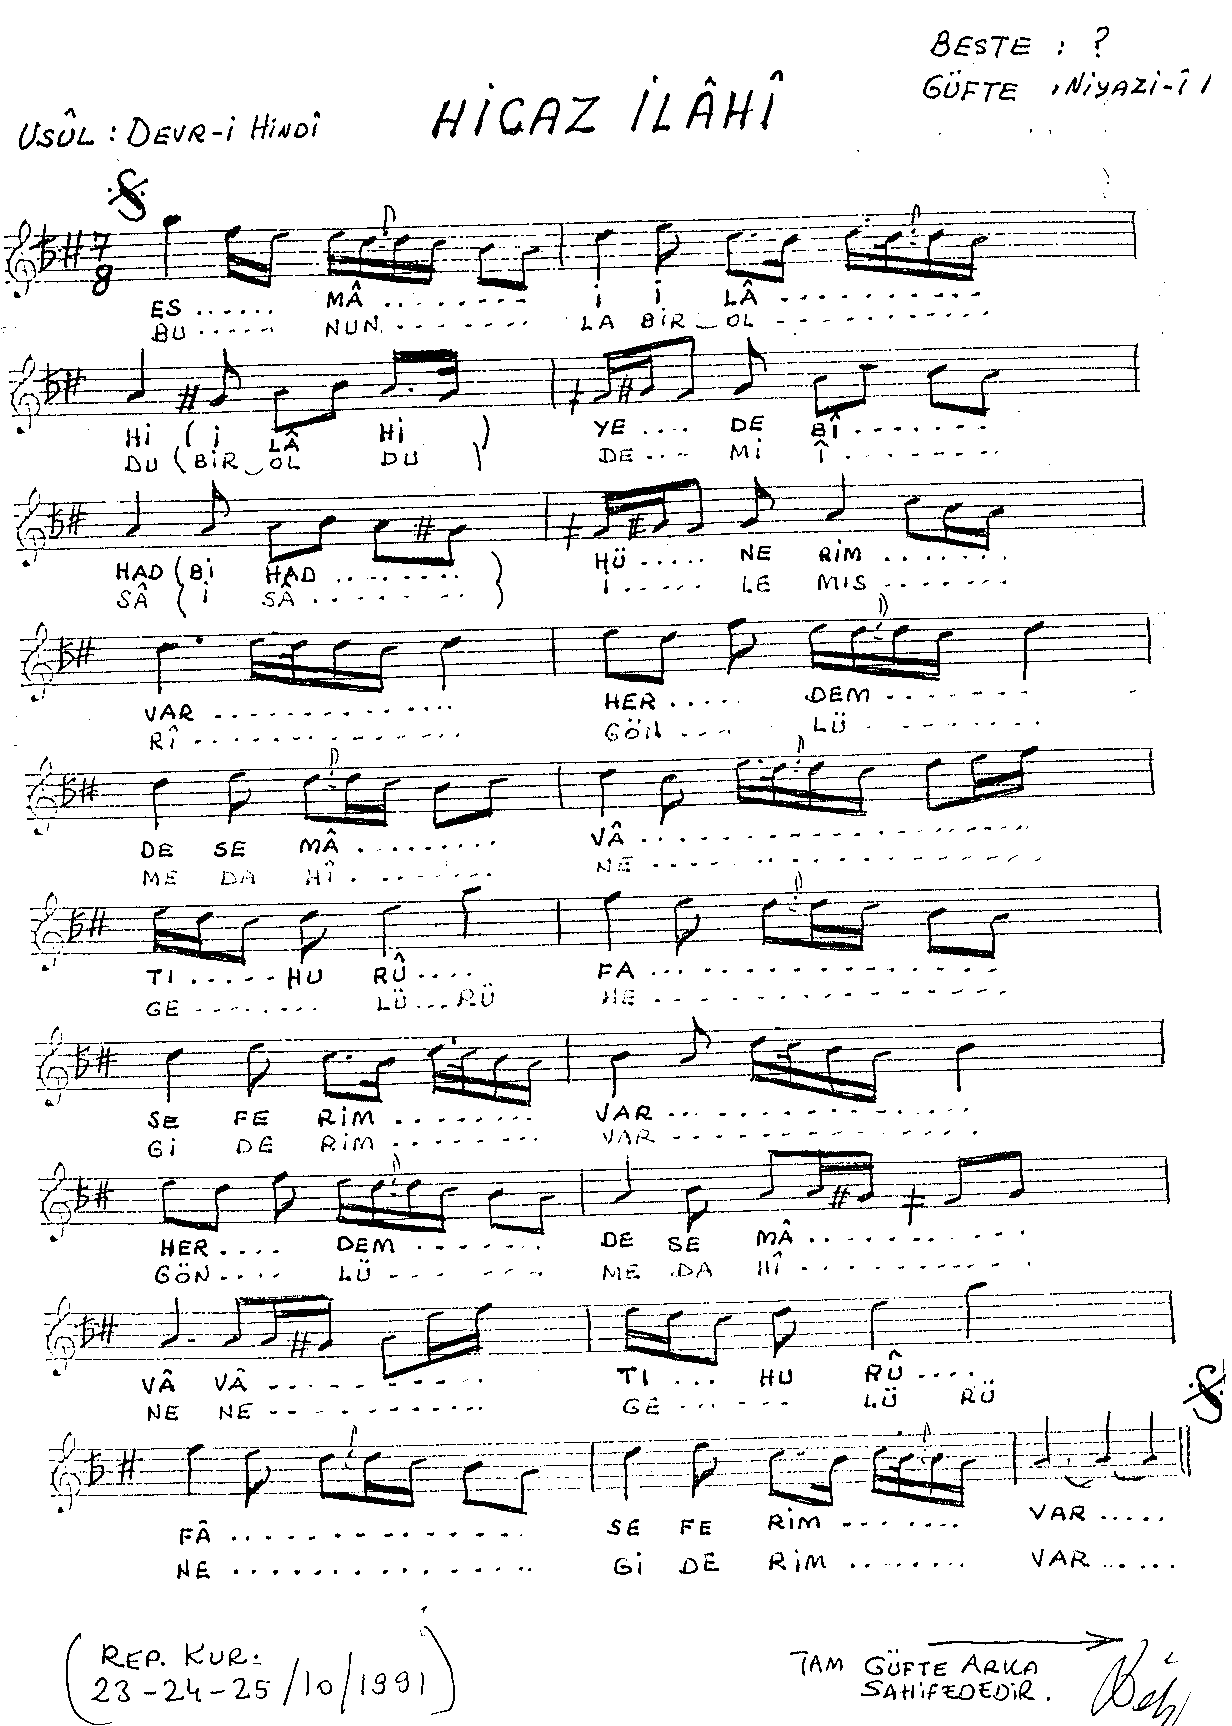 BESTE : ?
GÜFTE : NİYAZİ-Î
HİCAZ İLÂHÎ
USÛL : DEVR-İ HİNDÎ
7
8
ES ...... MÂ ......... İ İ LÂ ..............
BU ...... NUN ......... LA BİR_OL ..............
HI ( İ LÂ HI ) YE .... DE BÎ .........
DU ( BİR_OL DU ) DE .... MI Î .........
HAD ( BI HAD ........ ) HÜ ..... NE RİM ........
SÂ ( İ SÂ .......... ) İ ..... LE MIS ........
VAR .............. HER ..... DEM .........
RÎ .............. GÖN .... LÜ .........
DE SE MÂ ......... VÂ ......................
ME DA HÎ ......... NE ......................
TI ..... HU RÛ .... FA ...................
GE ........ LÜ ... RÜ NE ...................
SE FE RİM ......... VAR ................
GI DE RİM ......... VAR ................
HER .... DEM ........ DE SE MÂ ............
GÖN .... LÜ ......... ME DA HÎ ............
VÂ VÂ ............ TI ... HU RÛ .....
NE NE ............ GE ...... LÜ RÜ
FÂ .................. SE FE RİM ....... VAR .....
NE .................. GI DE RİM ....... VAR .....
( REP. KUR.
23-24-25/10/1991 )
TAM GÜFTE ARKA
SAHİFEDEDİR.